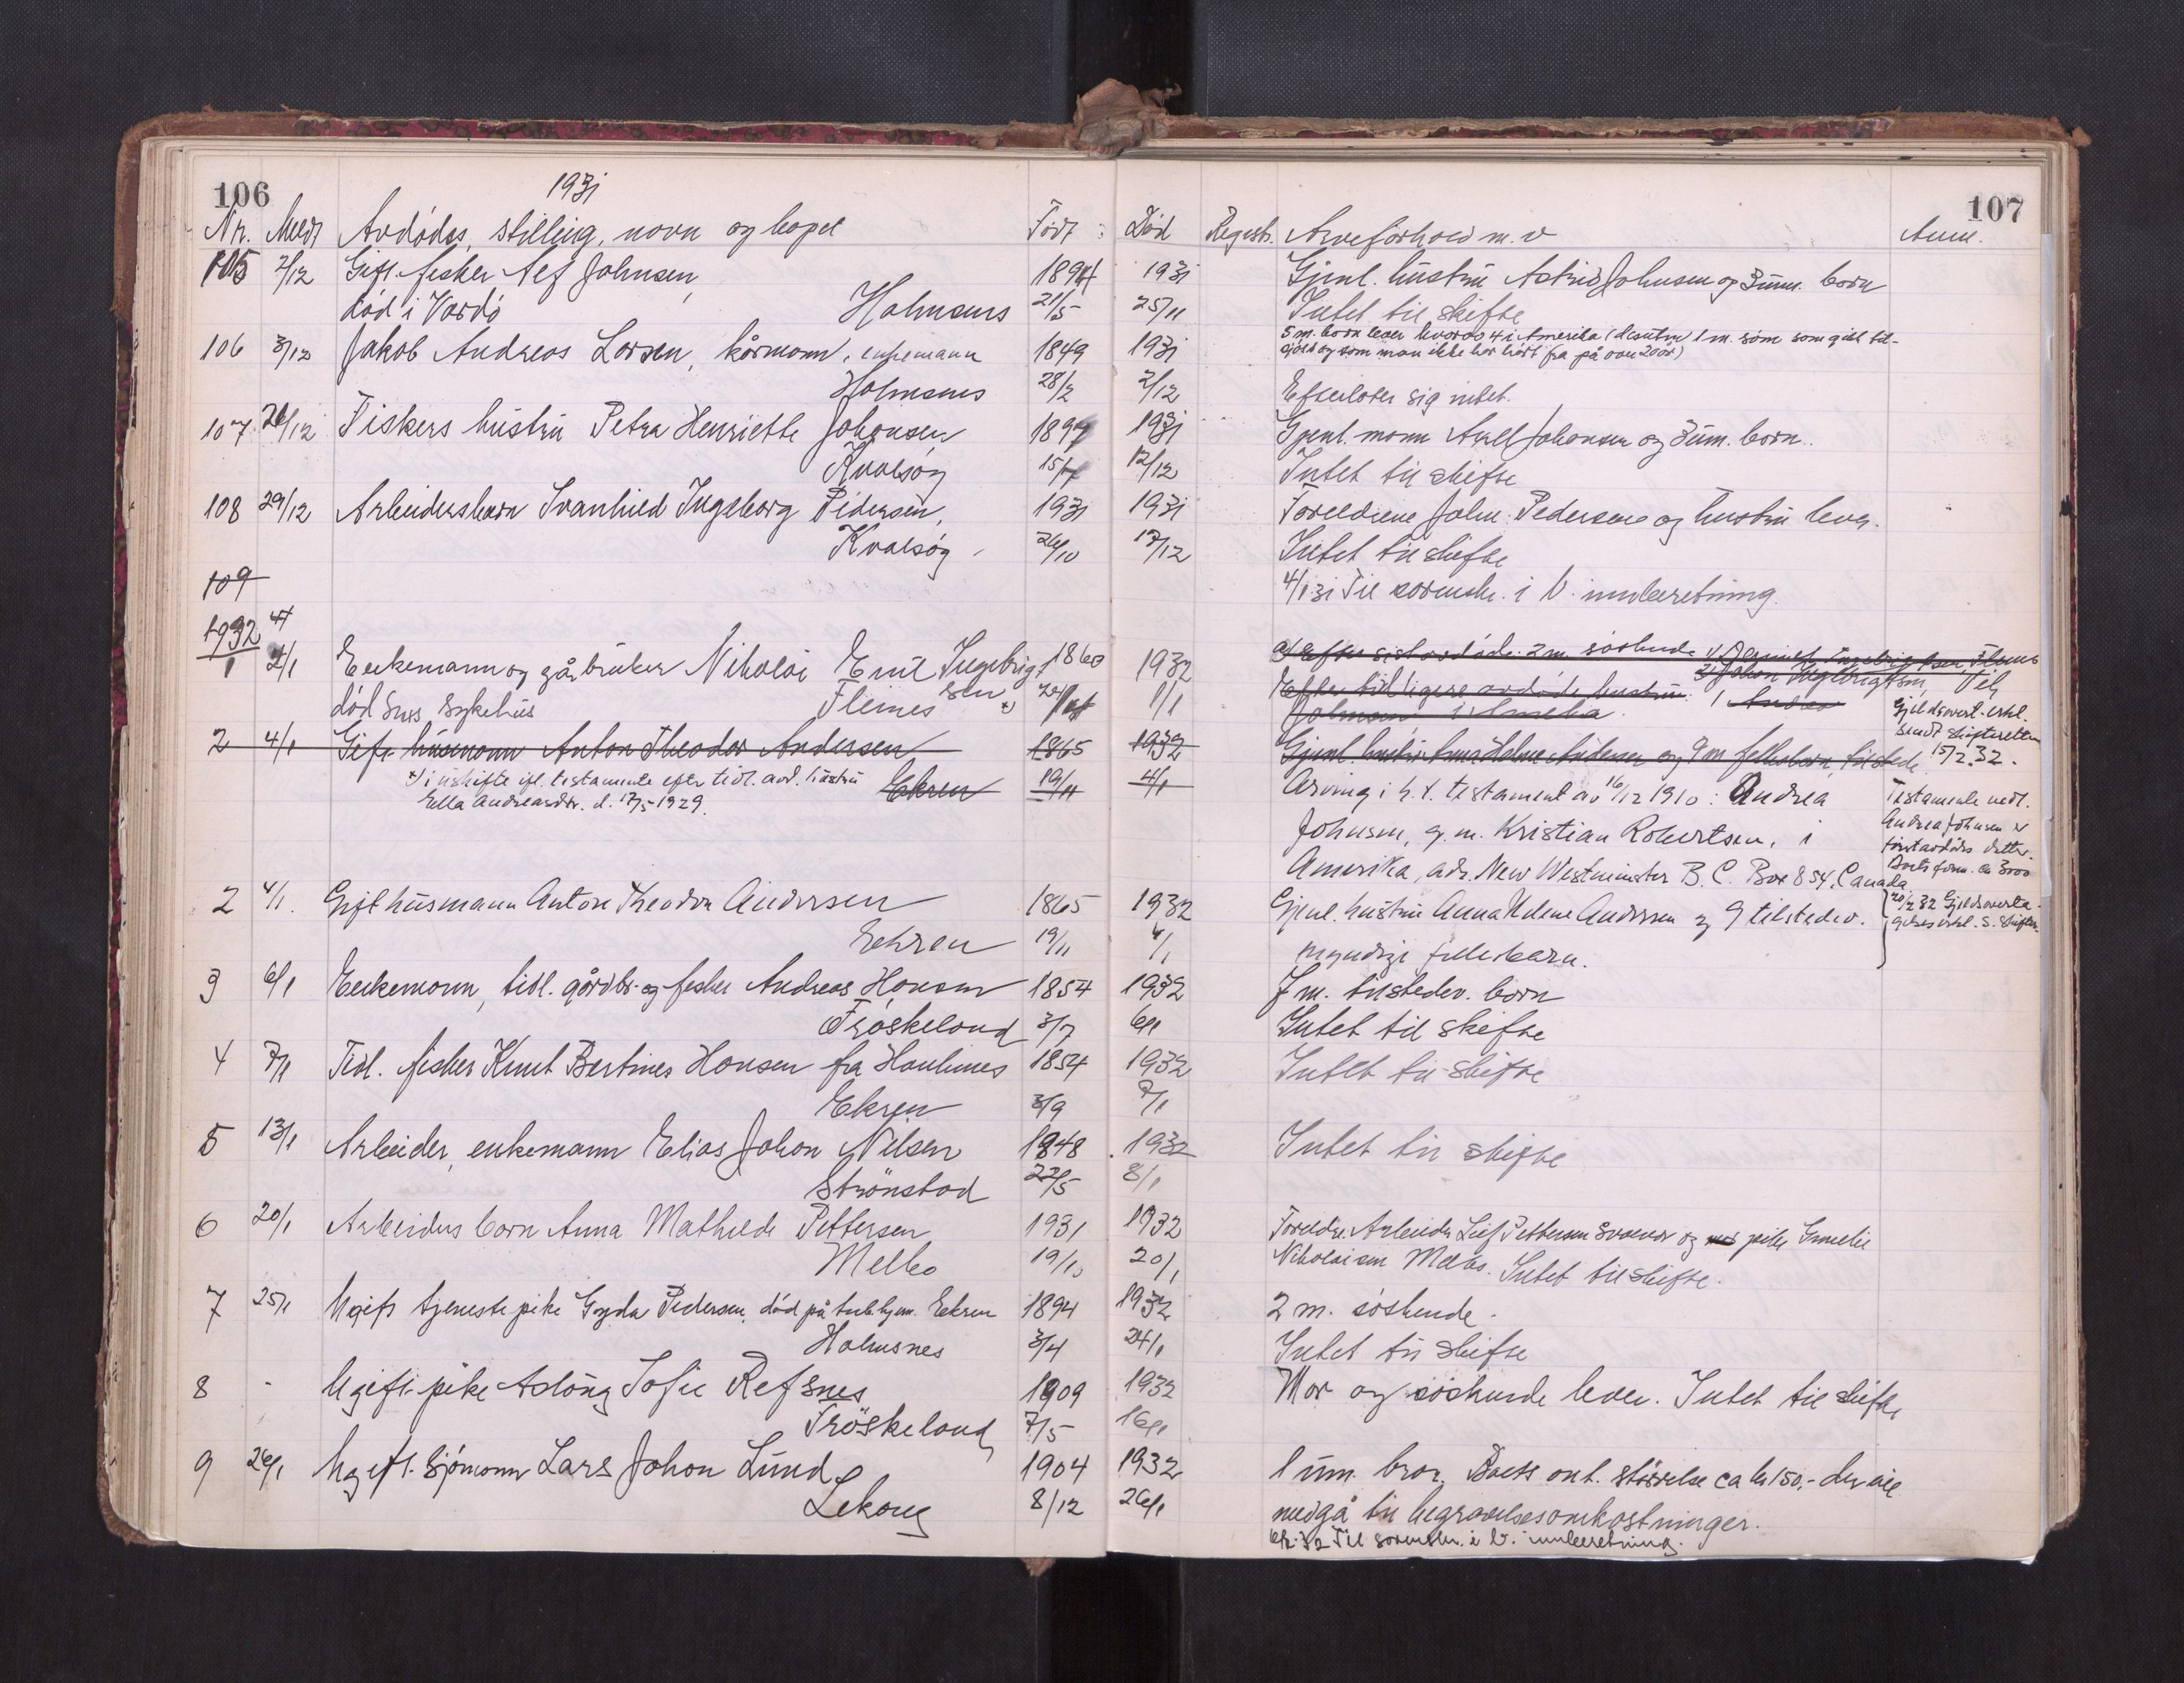 106
1931
107
Nr. Meldt Avdødes, stilling, navn og bopel Født: Død Registr. Arveforhold m. v Anm.
105 2/12 Gift fisker Alf Johnsen, 1894 1931 Gjenl. hustru Astrid Johnsen og 3 um. born
død i Vardø Holmsnes 21/5 25/11 Intet til skifte
106 3/12 Jakob Andreas Larsen, kårmann, enkemann 1849 1931 5 m. born lever hvorav 4 i Amerika (desuten 1 m. sønn som gikk til-
sjøss og som man ikke har hørt fra på over 20 år)
Holmsnes 28/2 2/12 Efterlater sig intet.
107 26/12 Fiskers hustru Petra Henriette Johansen 1897 1931 Gjenl. mann Axel Johansen og 3 um. born.
Kvalsøy 15/7 12/12 Intet til skifte
108 29/12 Arbeidersbarn Svanhild Ingeborg Pedersen, 1931 1931 Foreldrene John Pedersen og hustru lever.
Kvalsøy 26/10 17/12 Intet til skifte
109 4/1 31 Til sorenskr. i V. innberetning.
1932
1 4/1 Enkemann og gårbruker Nikolai Emil Ingebrigt 1860 1932 a) Efter sist avdøde: 2 m. søskende 1) Ingebrigtsen Flenes
2) Johan Ingebrigtsen,
død Sres sykehus Fleines sen x) 1/1 Efter tidligere avdøde hustru: 1 Andrea
Johnsen i Amerika.
Gjeldsovert. erkl.
sendt skifteretten
15/2.32.
2 4/1 Gift husmann Anton Theodor Andersen 1865 1932 Gjenl. hustru Anna Helene Andersen og 9 m. fellesborn, tilstede
x) i uskifte ifl. testamente efter tidl. avd. hustru Ekren 19/11 4/1
Ella Andreasdtr. d. 17/5 1929.
Arving i h. t. testament av 16/12 1910: Andrea
Johnsen, g. m. Kristian Robertsen, i
Amerika, adr. New Westminster B. C. Box 854, Canada
Testamente vedl.
Andrea Johnsen er
førstavdødes datter.
Boets form. ca 3000
2 4/1. Gift husmann Anton Theodor Andersen 1865 1932 Gjenl. hustru Anna Helene Andersen og 9 tilstedev.
20/2 32 Gjeldsoverta-
gelseserkl. s. skifter.
Ekren 19/11 4/1 myndige fellesbarn.
3 6/1 Enkemann, tidl. gårdbr. og fisker Andreas Hansen 1854 1932 7 m. tilstedev. born
Frøskeland 3/7 6/1 Intet til skifte
4 7/1 Tidl. fisker Knut Bertines Hansen fra Haukenes 1854 1932 Intet til skifte
Ekren 3/9 7/1
5 13/1 Arbeider, enkemann Elias Johan Nilsen 1848 1932 Intet til skifte
Strønstad 22/5 8/1
6 20/1 Arbeiders barn Anna Mathilde Pettersen 1931 1932 Foreldre: Arbeider Leif Pettersen Svolvær og pike Emelie
Melbo 19/10 20/1 Nikolaisen Melbo. Intet til skifte.
7 25/1 Ugift tjenestepike Gyda Pedersen, død på tub.hjem. Ekren 1894 1932 2 m. søskende.
Holmsnes 3/4 24/1 Intet til skifte
8 - Ugift pike Aslaug Sofie Refsnes 1909 1932 Mor og søskende lever. Intet til skifte
Frøskeland 7/5 16/1
9 26/1 Ugift sjømann Lars Johan Lund 1904 1932 1 um. bror. Boets ant. størrelse ca kr 150,- der vil
Lekang 8/12 26/1 medgå til begravelsesomkostninger.
6/2.32 Til sorenskr. i V. innberetning.